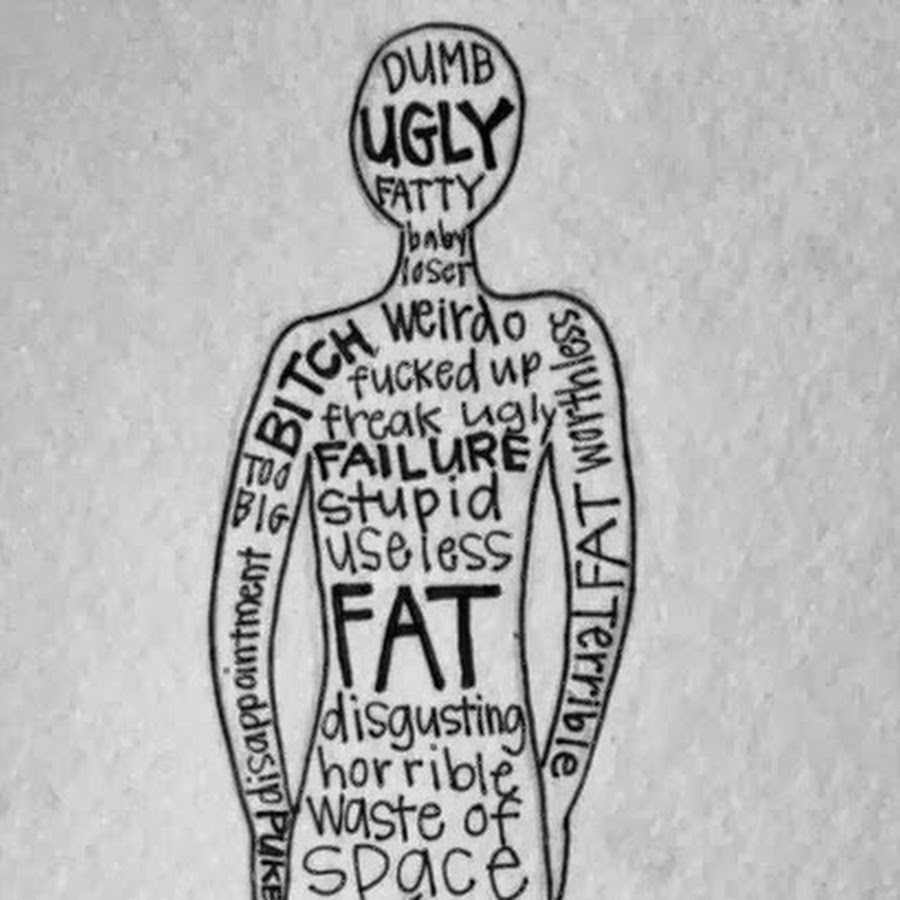 DUMB
UGLY
FATTY
baby
loser
weirdo
BITCH
fucked up
freak ugly
FAILURE
stupid
useless
FAT
disgusting
horrible
waste of
space
TOO
BIG
disappointment
PUKE
worthless
FAT
Terrible